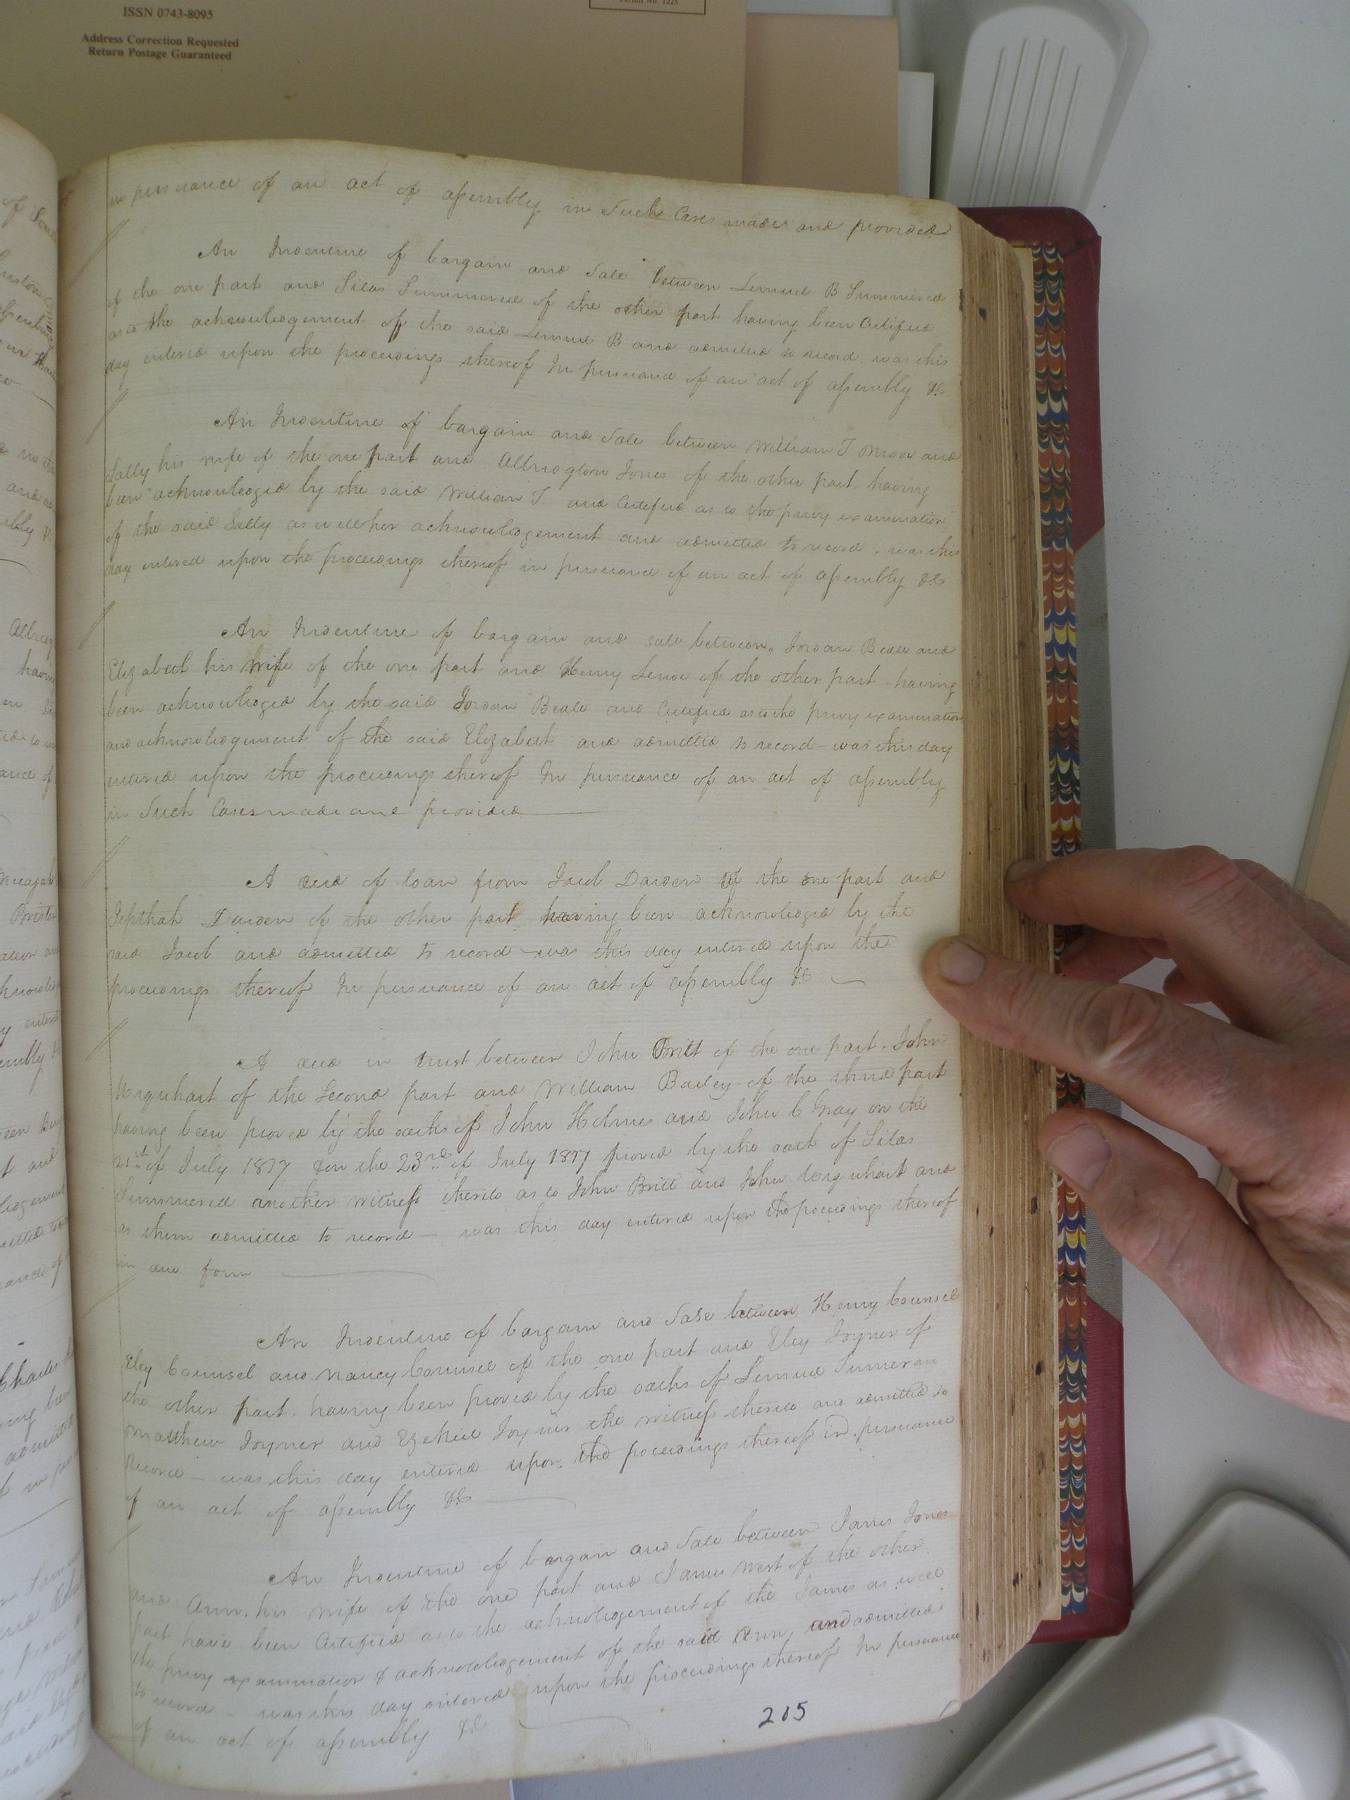 ISSN 0743-8095
Address Correction Requested
Return Postage Guaranteed
in pursuance of an act of assembly in Such Cases made and provided
An Indenture of bargain and Sale between Lemuel B Summerell
of the one part and Silas Summerell of the other part having been Certified
as to the acknowledgement of the said Lemuel B and admitted to record was this
day entered upon the proceedings thereof In pursuance of an act of assembly &c
An Indenture of bargain and Sale between William T and
Sally his wife of the one part and Albridgton Jones of the other part having
been acknowledged by the said William T and Certified as to the privy examination
of the said Sally as well her acknowledgement and admitted to record was this
day entered upon the proceedings thereof in pursuance of an act of assembly &c
An Indenture of bargain and sale between Jordan Beale and
Elizabeth his wife of the one part and Henry of the other part having
been acknowledged by the said Jordan Beale and Certified as to the privy examination
and acknowledgement of the said Elizabeth and admitted to record was this day
entered upon the proceedings thereof In pursuance of an act of assembly
in Such Cases made and provided
A deed of loan from Jacob Darden of the one part and
Jepthah Darden of the other part having been acknowledged by the
said Jacob and admitted to record was this day entered upon the
proceedings thereof In pursuance of an act of assembly &c
A deed in trust between John Britt of the one part John
Urquhart of the Second part and William Bailey of the third part
having been proved by the oaths of John Holmes and John C Gray on the
21st of July 1817 & on the 23rd of July 1817 proved by the oath of Silas
Summerell another witness thereto as to John Britt and John Urquhart and
as them admitted to record was this day entered upon the proceedings thereof
in due form
An Indenture of bargain and Sale between Henry Counsel
Eley Counsel and Nancy Counsel of the one part and Eley Joyner of
the other part having been proved by the oaths of Lemuel
Matthew Joyner and Ezekiel Joyner the witness thereto and admitted to
Record was this day entered upon the proceedings thereof in pursuance
of an act of assembly &c
An Indenture of bargain and Sale between James Jones
and Ann his wife of the one part and James West of the other
part have been Certified as to the acknowledgement of the James as well
the privy examination & acknowledgement of the said Ann and admitted
to record was this day entered upon the proceedings thereof In pursuance
of an act of assembly &c
215